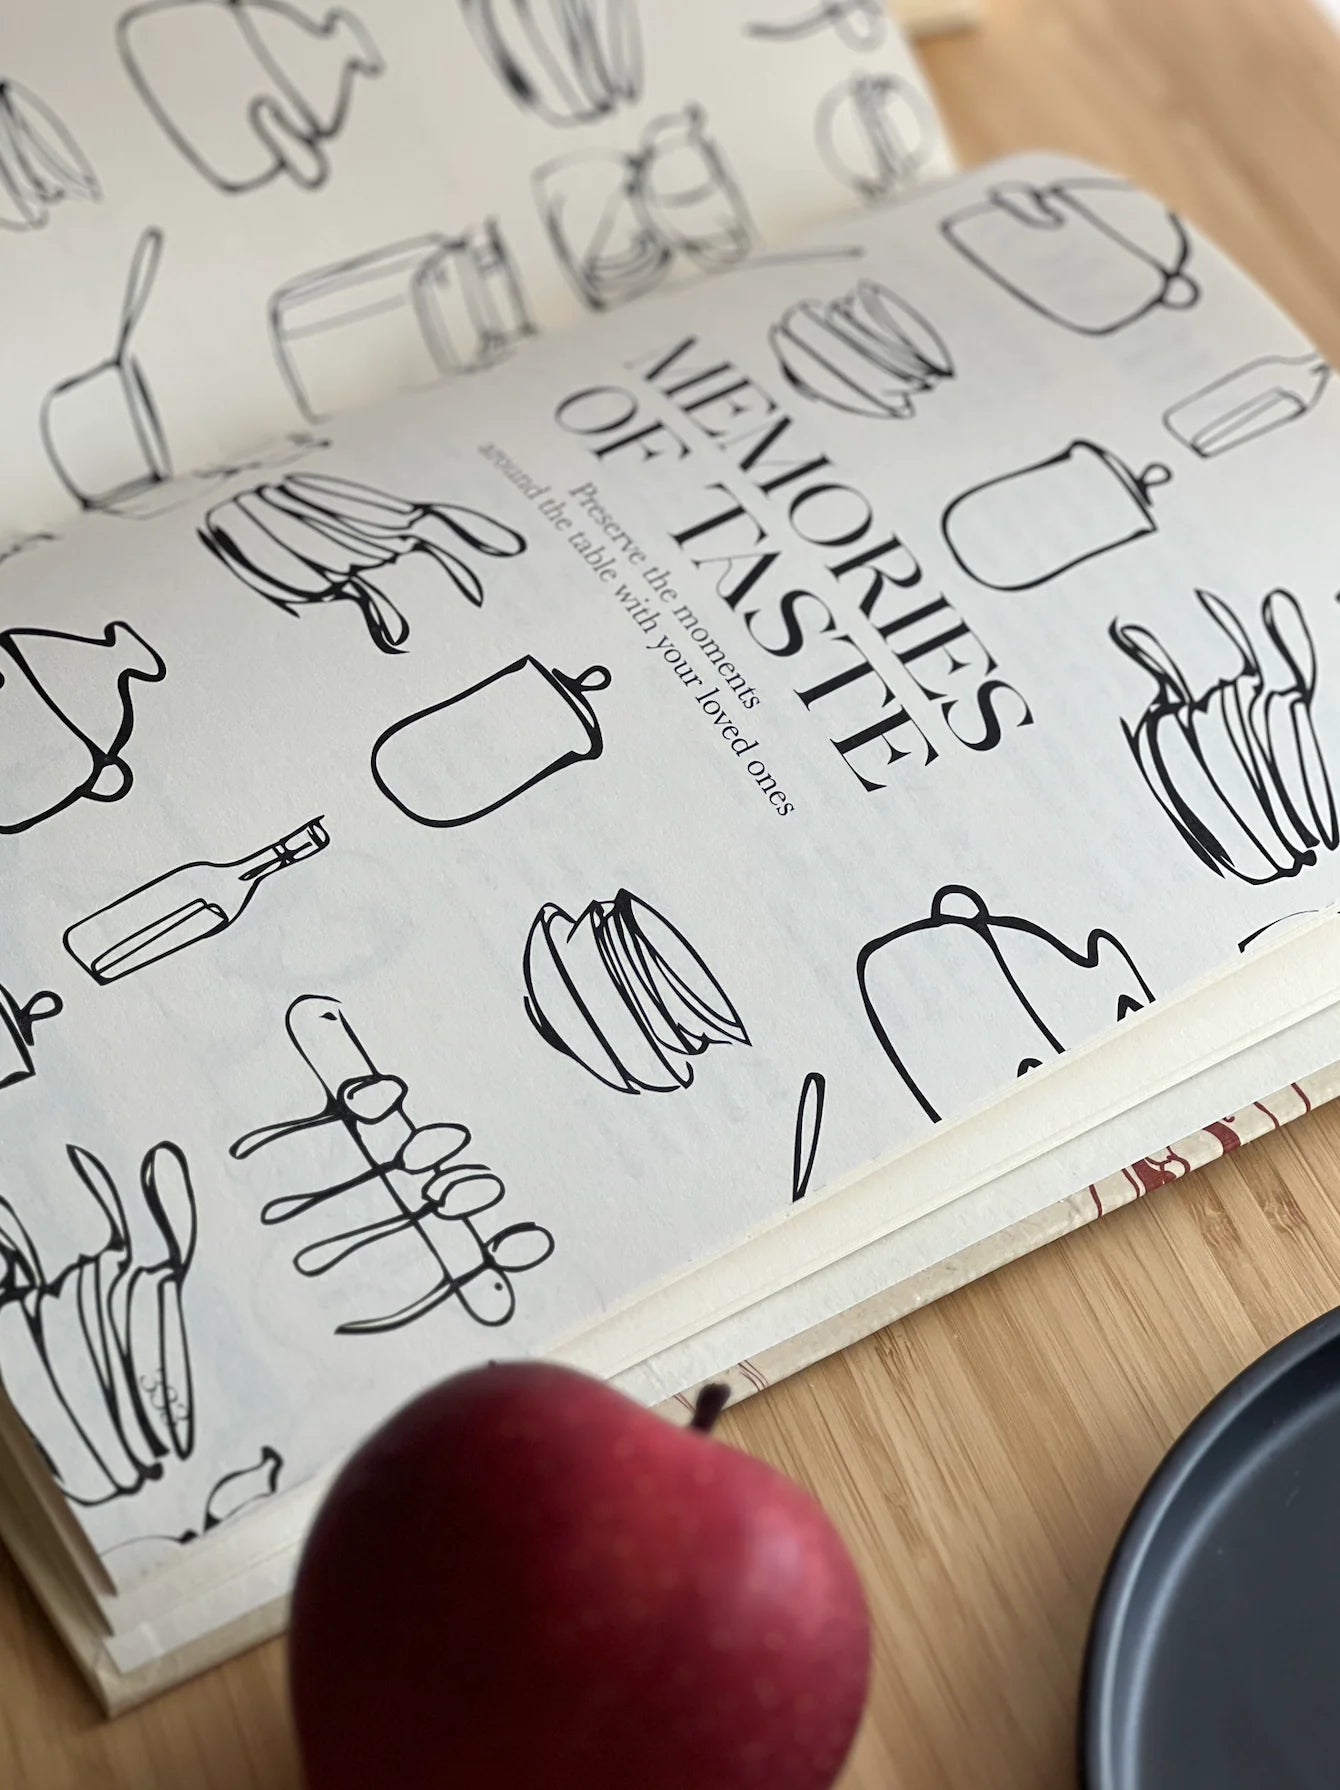 MEMORIES
OF TASTE
Preserve the moments
around the table with your loved ones